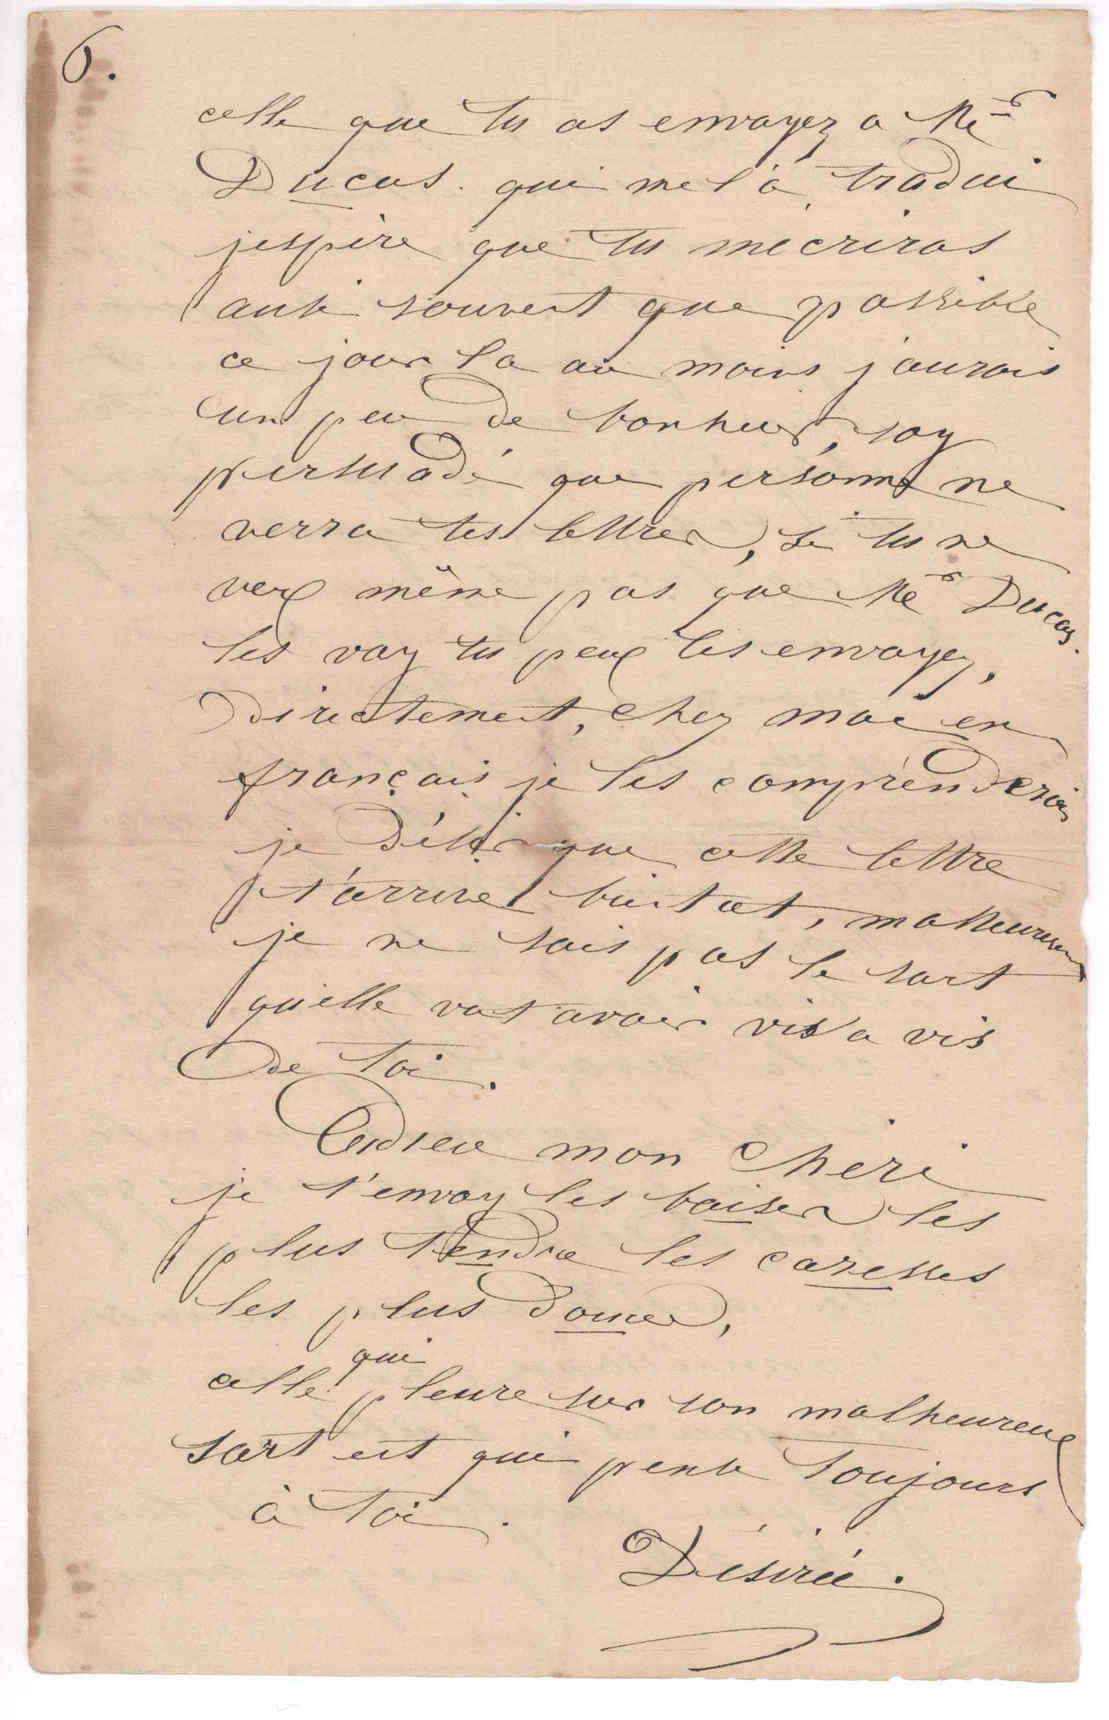 6.
celle que tu as envoyez a Mr
Ducas. qui me l'a tradui
jespère que tu mecriras
ausi souvent que possible
ce jour la au moins j'aurais
un peu de bonheur, soy
persuadé que personne ne
verra tes lettres, si tu ne
veux même pas que Mr Ducas.
les voay tu peux les envoyez,
directement, chez moi en
français je les comprenderais
je désir que cette lettre
t'arrive bientot, malheureu
je ne sais pas le sort
qu'elle vat avoir vis a vis
de toi.
Adieu mon cheri
je t'envoy les baiser les
plus tendre les caresses
les plus douces,
celle qui pleure sur son malheureux
sort et qui pense toujours
à toi.
Désirée.